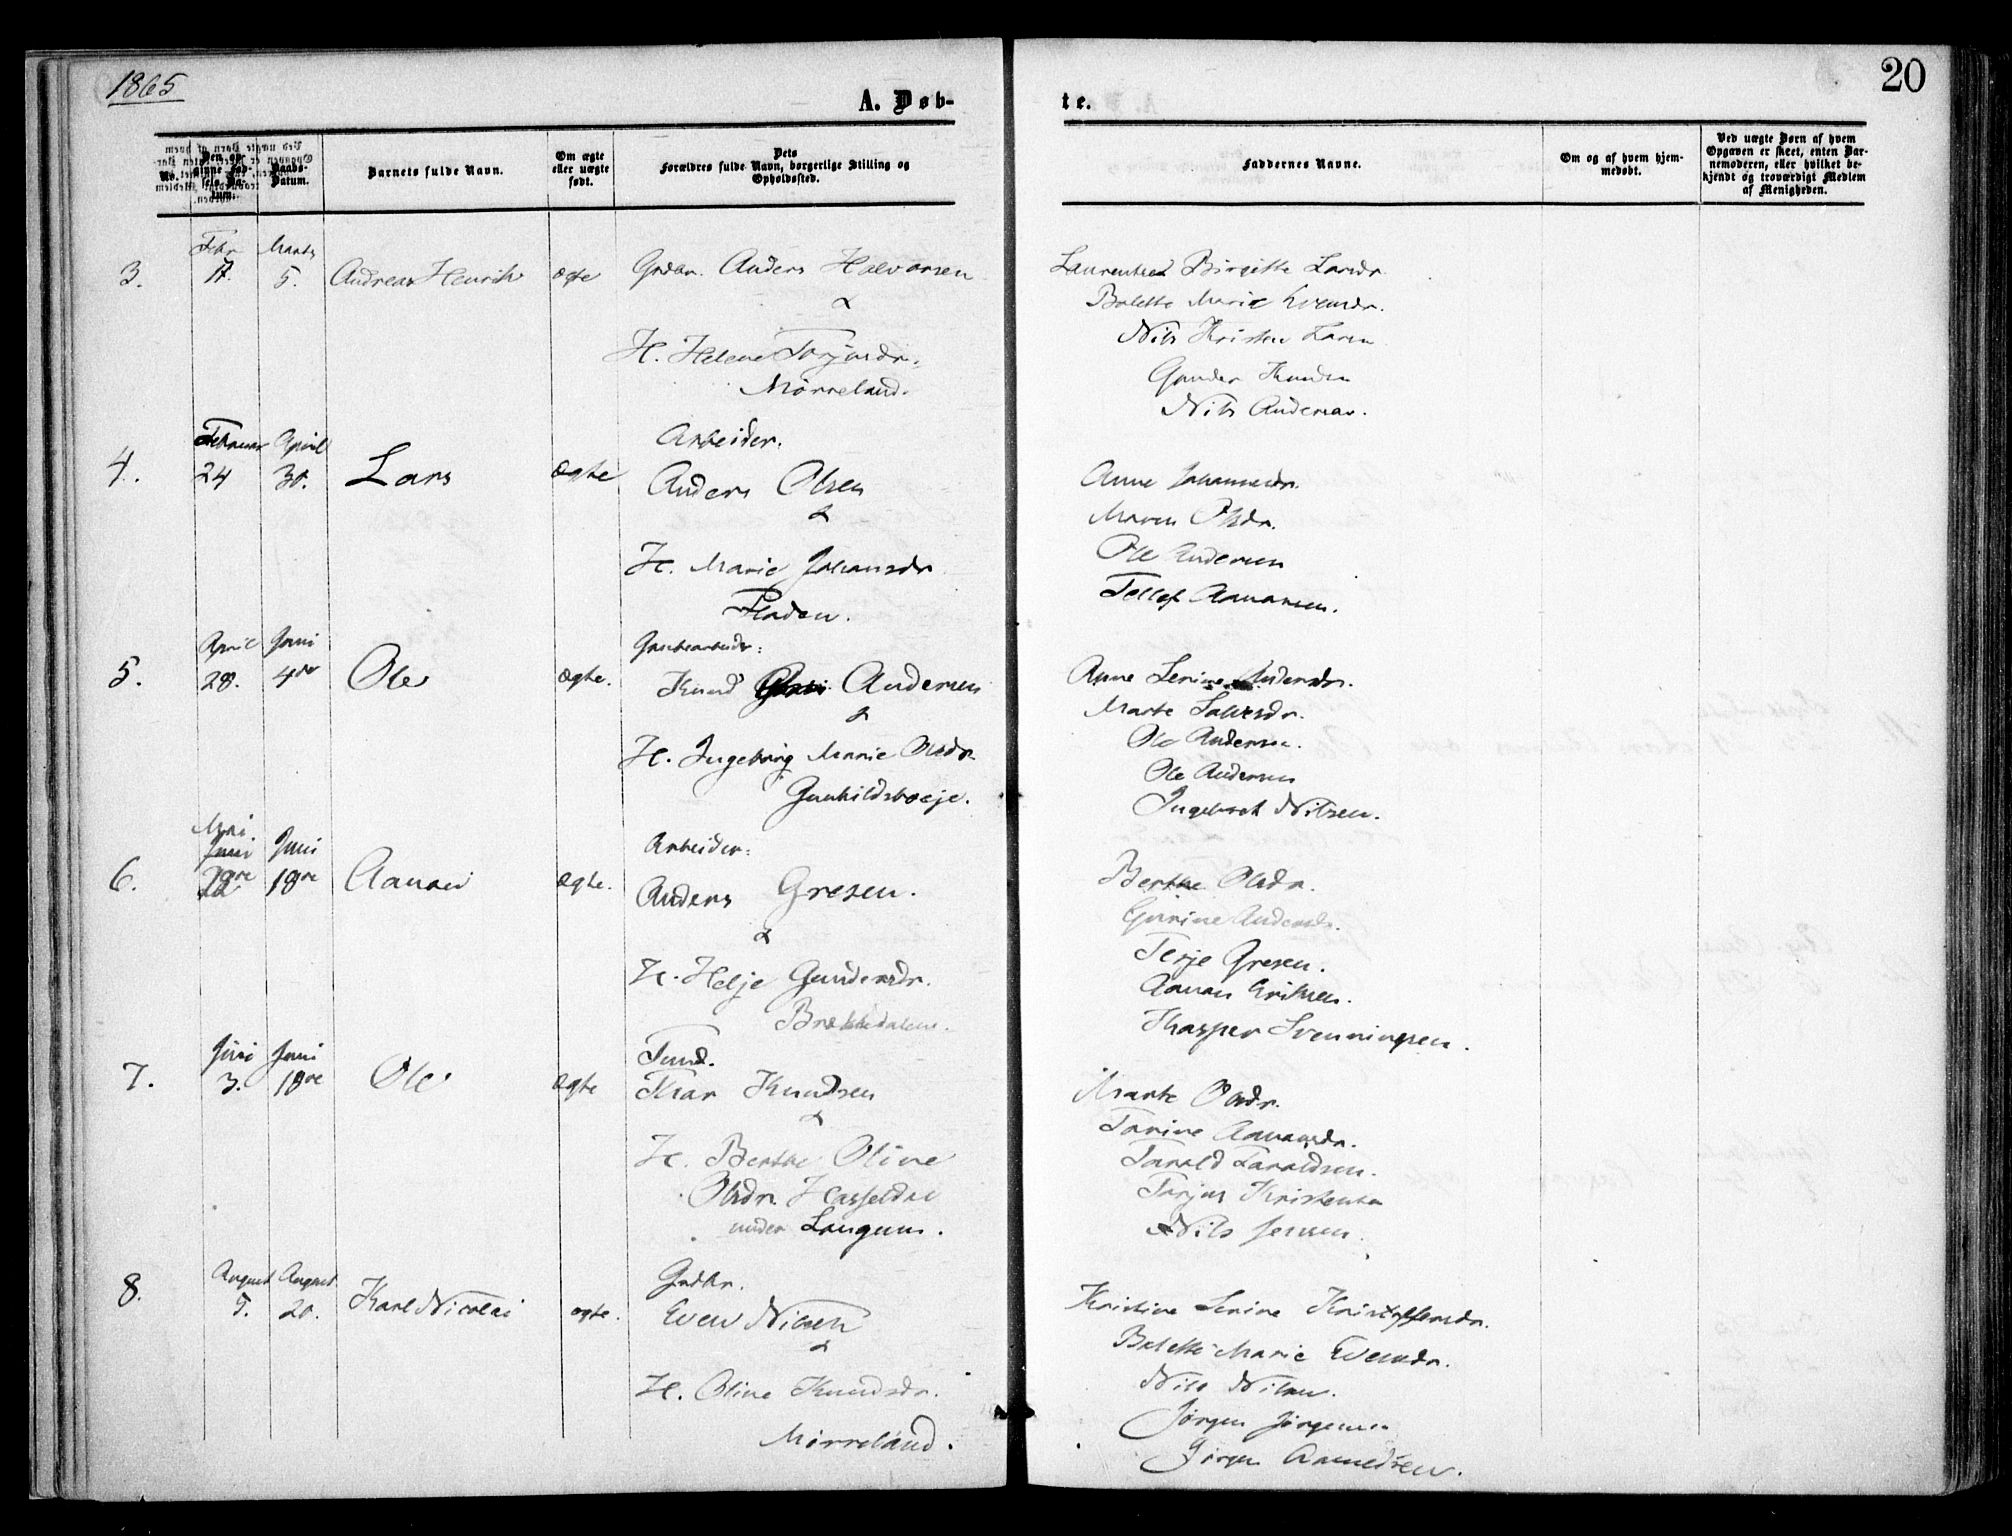 1865
20
A. Døb-
te.
No.
Barnets fulde Navn.
Om ægte
eller uægte
født.
Dets
Forældres fulde Navn, borgerlige Stilling og
Opholdssted.
Faddernes Navne.
Om og af hvem hjem-
medøbt.
Ved uægte Børn af hvem
Opgaven er skeet, enten Bar-
nemoderen, eller hvilket be-
kjendt og troværdigt Medlem
af Menigheden.
Febr Marts
3. 5. Andreas Henrik ægte Grdbr. Anders Halvorsen
&
H. Helene Torjusdr.
Mørreland.
Birgitte Larsdr.
Bolette Marie Evensdr.
Nils Kristen
Gunder Knudsen
Nils Andersen.
Februar April
4. 24 30. Lars ægte
Arbeider.
Anders Olsen
&
H. Marie Johansdr
Fladen.
Anne Johannesdr.
Maren Olsdr.
Ole Andersen
Tellef Aanonsen.
April Juni
5. 28. 4de Ole ægte.
Knud Andersen
&
H. Ingeborg Marie Olsdr
Gunhildsboeje.
Anne Serine Andersdr.
Marte Salvesdr.
Ole Andersen.
Ole Andersen
Ingebret Nilsen.
Mai.
Juni Juni
6. 18de Aanon ægte.
Arbeider.
Anders Gresen.
&
H. Helje Gundersdr.
Brækkedalen.
Berthe Olsdr.
Gurine Andersdr.
Terje Gresen.
Aanon Eriksen.
Kasper Svenningsen.
Juni Juni
7. 3. 18de Ole ægte
Tmd.
Knudsen
&
H. Berthe Oline
Olsdr. Hasseldal
under Langum.
Marte Olsdr.
Torine Aanonsdr.
Tarald Taraldsen.
Torjus Kristensen
Nils Jensen.
August August
8. 5. 20. Karl Nicolai ægte.
Grdbr.
Even Nilsen
&
H. Oline Knudsdr.
Mørreland.
Kristine Serine Kristoffersdr.
Bolette Marie Evensdr.
Nils Nilsen.
Jørgen Jørgensen
Jørgen